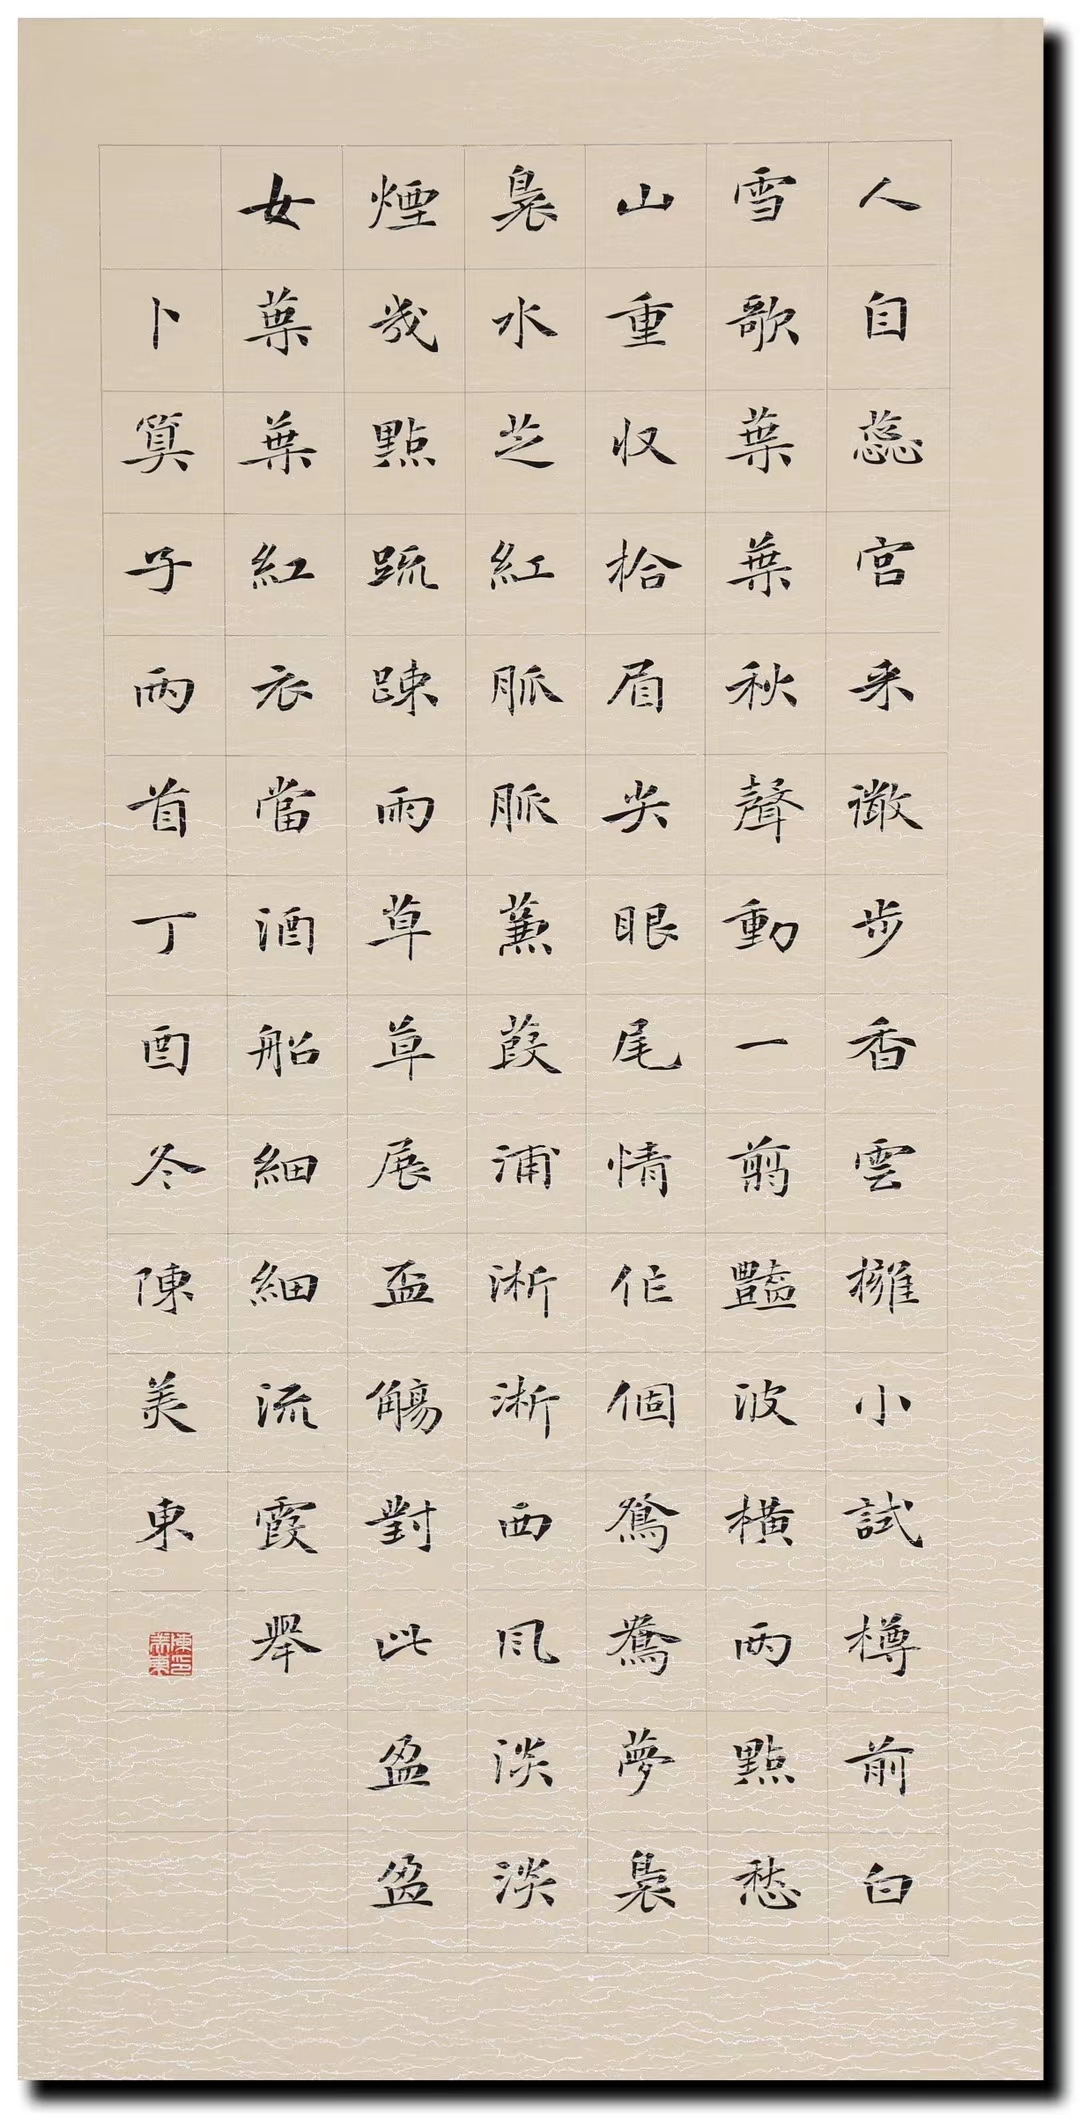 人自蕊宮来微步香雲擁小試樽前白
雪歌葉葉秋聲動一剪豔波橫兩點愁
山重収拾眉尖眼尾情作個鴛鴦夢裊
裊水芝紅脈脈蒹葭浦淅淅西風淡淡
煙幾點疏踈雨草草展盃觴對此盈盈
女葉葉紅衣當酒船細細流霞舉
卜算子兩首丁酉冬陳美東
陳美東印